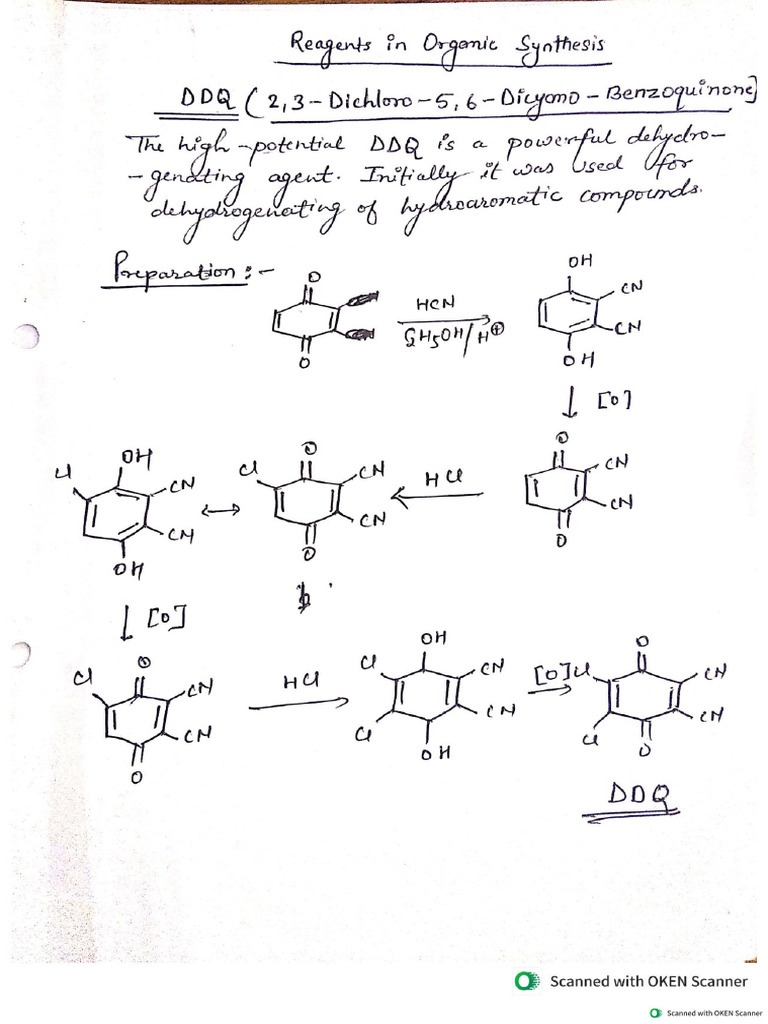 Reagents in Organic Synthesis
DDQ (2,3-Dichloro-5,6-Dicyono-Benzoquinone]
The high-potential DDQ is a powerful dehydro-
-genating agent. Initially it was used for
dehydrogenating of hydroaromatic compounds.
Preparation:-
O
O
HCN
C2H5OH/H⊕
OH
CN
CN
OH
[O]
O
CN
CN
O
HCl
O
Cl
CN
CN
O
OH
Cl
CN
CN
OH
[O]
O
Cl
CN
CN
O
HCl
OH
Cl
CN
Cl
CN
OH
[O]
O
Cl
CN
Cl
CN
O
DDQ
Scanned with OKEN Scanner
Scanned with OKEN Scanner